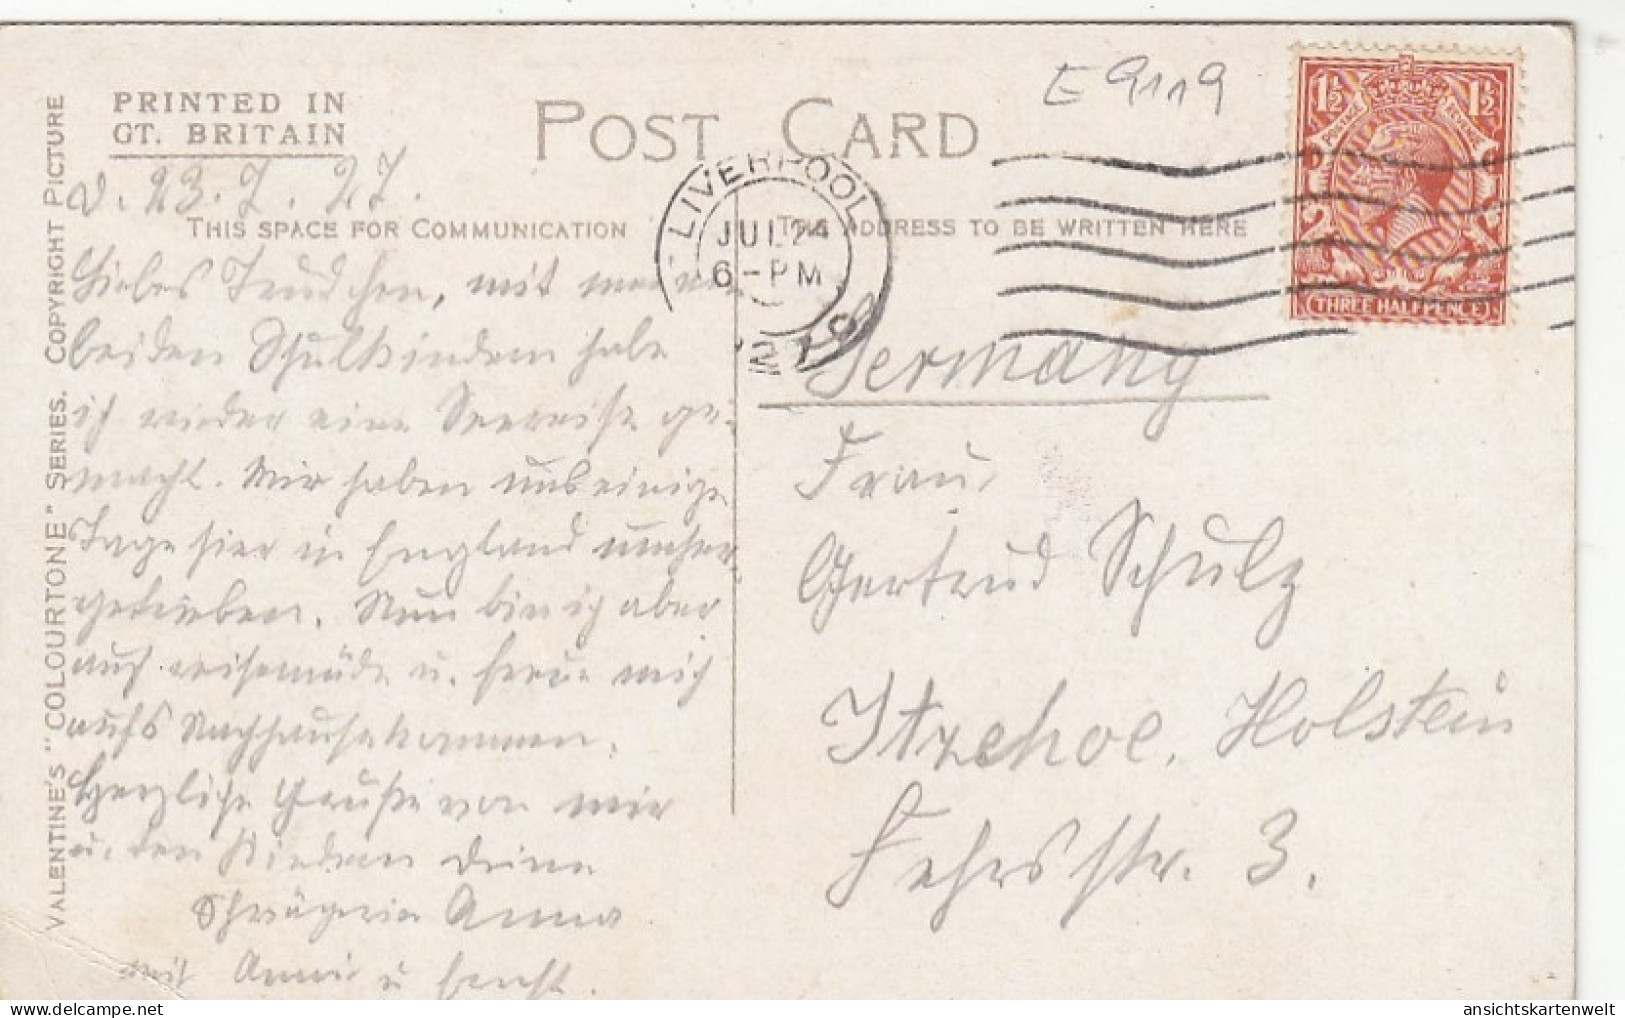 PRINTED IN
GT. BRITAIN
POST CARD
E 9119
1½ 1½
POSTAGE REVENUE
THREE HALFPENCE
LIVERPOOL
JUL 24
6-PM
27
d. 23.7.27.
THIS SPACE FOR COMMUNICATION
THE ADDRESS TO BE WRITTEN HERE
VALENTINE'S "COLOURTONE" SERIES. COPYRIGHT PICTURE
Liebes Trudchen, mit meinen
beiden Schulkindern habe
ich wieder eine Seereise ge-
macht. Wir haben uns einige
Tage hier in England umher-
getrieben. Nun bin ich aber
auch reisemüde u. freue mich
aufs Nachhausekommen.
Herzliche Grüße von mir
u. den Kindern Deine
Schwägerin Anna
mit Anni u
Germany
Frau
Gertrud Schulz
Itzehoe, Holstein
Fehrsstr. 3.
ansichtskartenwelt